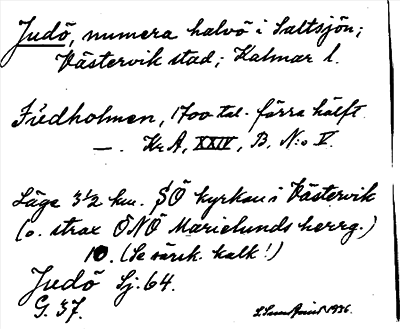 Judö, numera halvö i Saltsjön;
Västervik stad; Kalmar l.
Fredholmen, 1700 tal. förra hälft
—. Kr. A, XXIV, B, N:o V.
Läge 3½ km. SÖ kyrkan i Västervik
(o. strax ÖNÖ Marielunds herrg.)
10. (Se särsk. kalk!)
Judö Sj. 64.
G. 37.
1936.